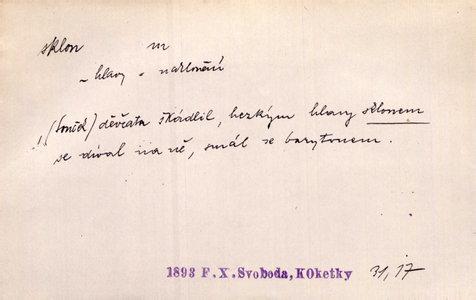 sklon m
~ hlavy = naklonění
„(Toníček) děvčata škádlil, hezkým hlavy sklonem
se díval na ně, smál se barytonem.
1893 F.X.Svoboda,KOketky 31,17